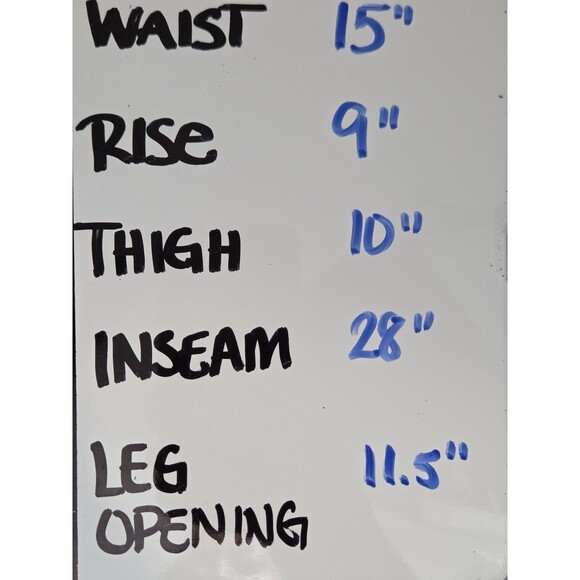 WAIST 15"
RISe 9"
THIGH 10"
INSEAM 28"
LEG 11.5"
OPENING